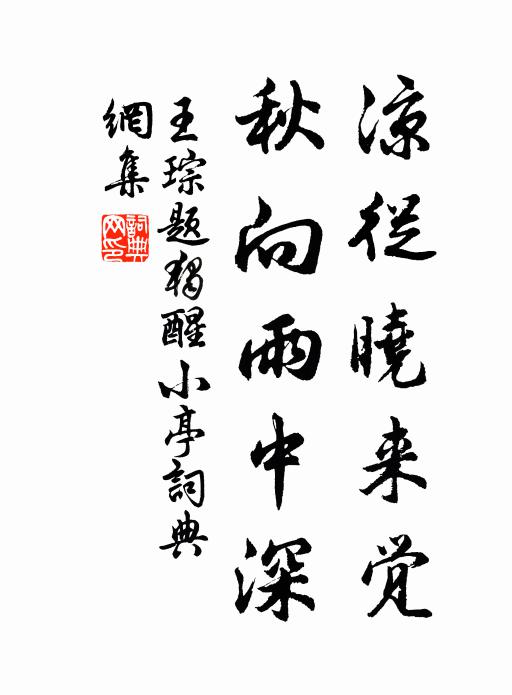 凉從曉来觉
秋向雨中深
王琮题獨醒小亭詞典
網集
詞典网印